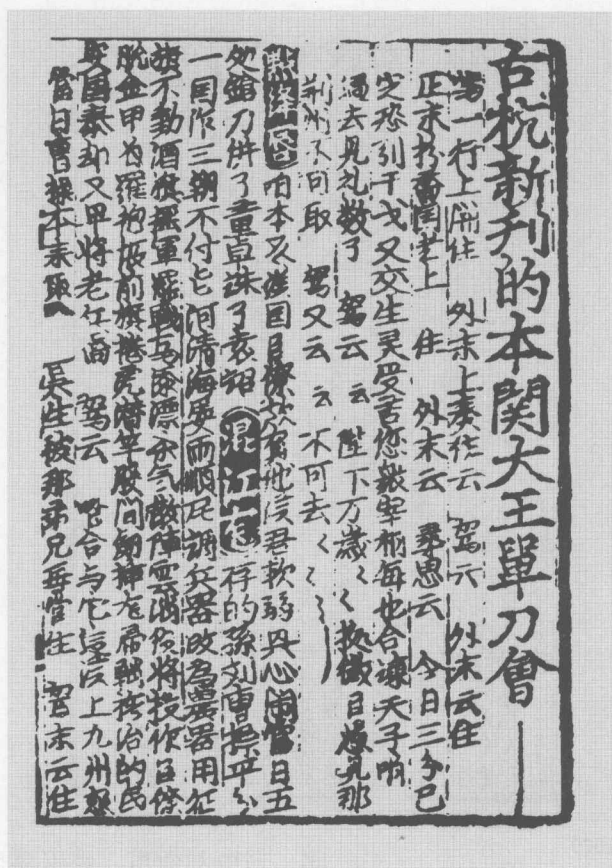 古杭新刊的本関大王單刀會
駕一行上開住　外末上奏住云　駕云　外末云住
正末扮喬国老上　住　外末云　尋思云　今日三分已
定恐引干戈又交生灵受苦您衆宰相每也合諫天子咱
過去見礼数了　駕云　云　陛下万歳〻〻　㩀微臣愚見那
荆州不可取　駕又云　云　不可去〻〻〻
點絳唇　咱本是漢国臣僚欺負他漢君軟弱興心閙當日五
処鎗刀併了董卓誅了袁紹　混江龍　存的孫刘曹操平分
一国作三朝不付能河清海晏雨順風調兵器改為農器用征
旗不動酒旗揺軍罷戰馬添膘殺气散陣雲消役將校作臣僚
脱金甲着羅袍帳前旗捲虎潜竿腰间劔插龙歸鞘撫治的民
安国泰却又早將老兵喬　駕云　咱合与它這漢上九州想
當日曹操本来取　吳生被那弟兄每當住　駕末云住